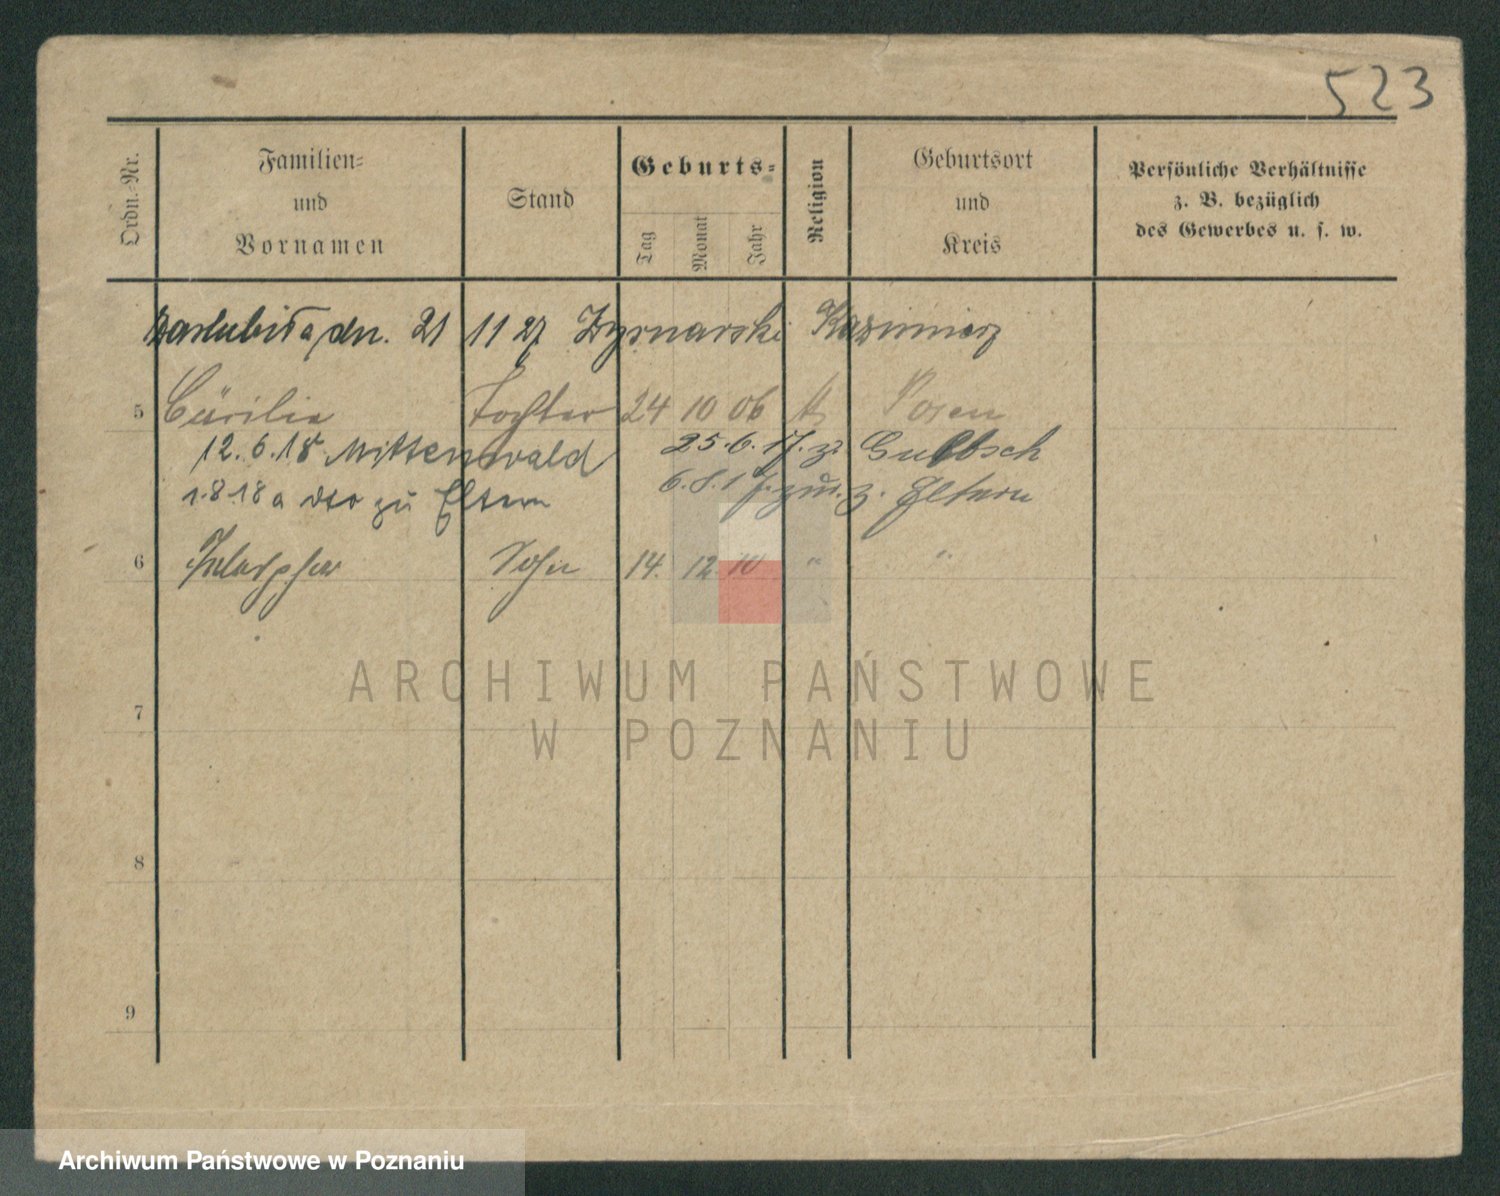 523
Ordn.-Nr.
Familien-
und
Vornamen
Stand
Geburts-
Tag
Monat
Jahr
Religion
Geburtsort
und
Kreis
Persönliche Verhältnisse
z. B. bezüglich
des Gewerbes u. s. w.
dn. 21 11 27 Kazimierz
5 Cäcilie Tochter 24 10 06 Posen
12.6.18 Mittenwald 25.6.17. z.
1.8.18 a zu Eltern z. Eltern
6 Sohn 14. 12. 10 " "
7
8
9
ARCHIWUM PAŃSTWOWE
W POZNANIU
Archiwum Państwowe w Poznaniu